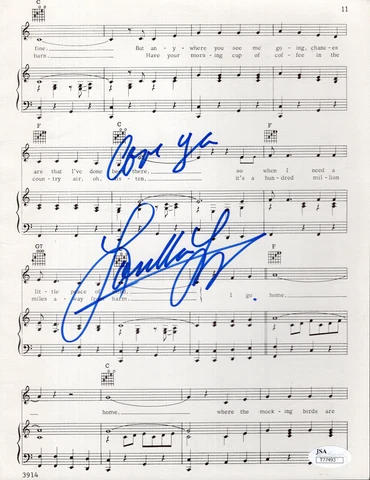 11
C
fine, But an - y - where you see me go - ing, chanc - es
barn Have your morn - ing cup of cof - fee in the
F C F
are that I've done been there, so when I need a
coun - try air, oh, lis - ten, it's a hun - dred mil - lion
Love ya
G7 C F
lit - tle peace of
miles a - way from harm. I go home,
Loretta Lynn
C
home, where the mock - ing birds are
JSA
T77493
3914